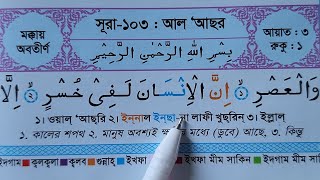 মক্কায়
অবতীর্ণ
সূরা-১০৩ : আল ‘আছর
আয়াত : ৩
রুকু : ১
بِسْمِ اللّٰهِ الرَّحْمٰنِ الرَّحِيْمِ
وَالْعَصْرِ ۝١ اِنَّ الْاِنْسَانَ لَفِيْ خُسْرٍ ۝٢ اِلَّا
১। ওয়াল্ ‘আছ্‌রি ২। ইন্নাল ইন্‌ছা-না লাফী খুছ্‌রিন্ ৩। ইল্লাল্
১. কালের শপথ ২. মানুষ অবশ্যই মধ্যে (ডুবে) আছে, ৩. কিন্তু
ইদগাম কলকলা কলব গুন্নাহ্ ইখফা মীম সাকিন ইদগাম মীম সাকিন